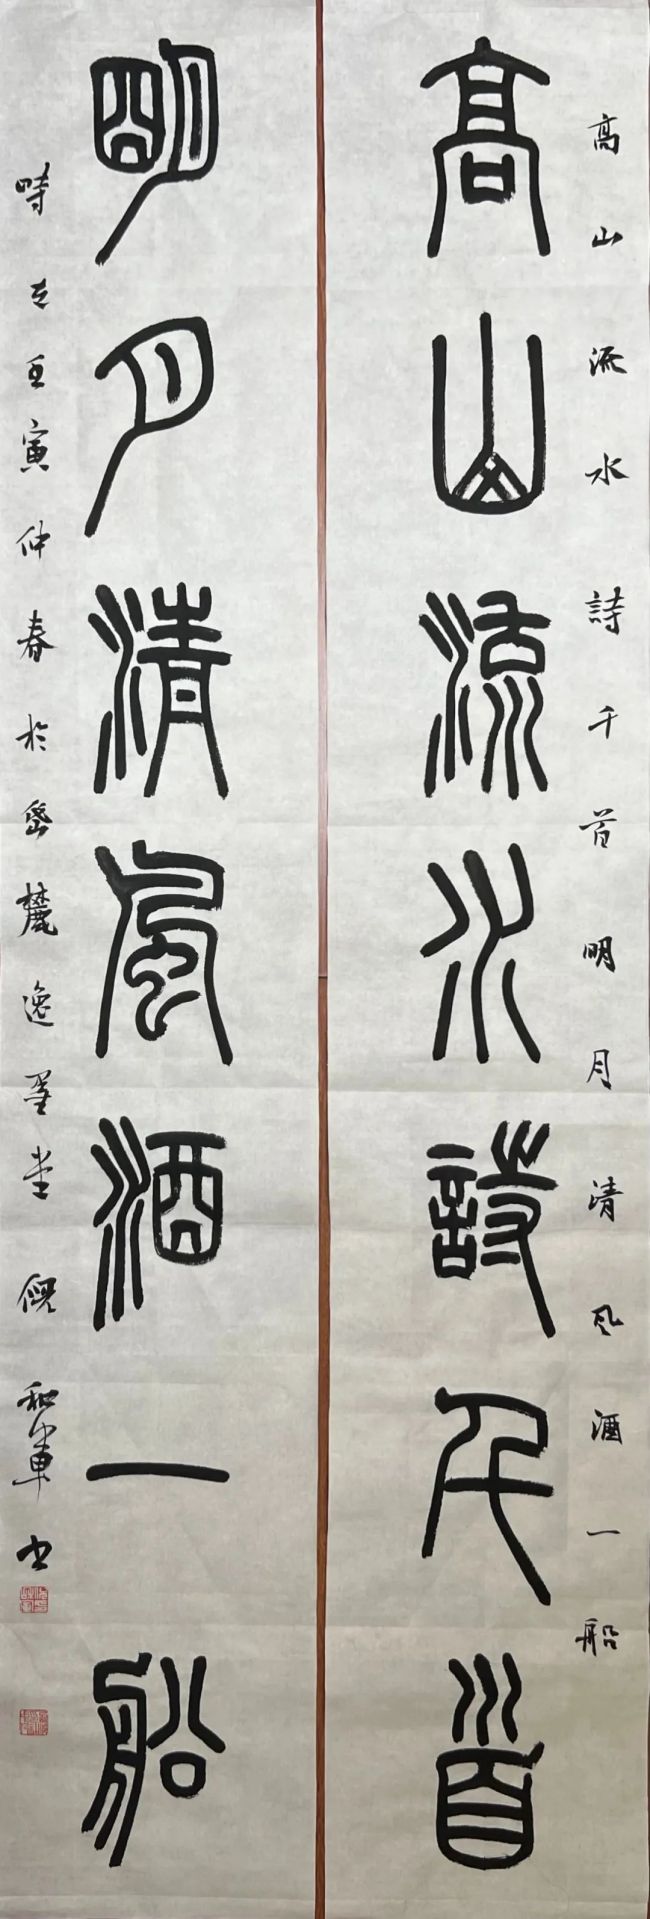 高山流水詩千首明月清風酒一船
高山流水詩千首
明月清風酒一船
時在壬寅仲春於岳麓逸墨堂倪和軍书